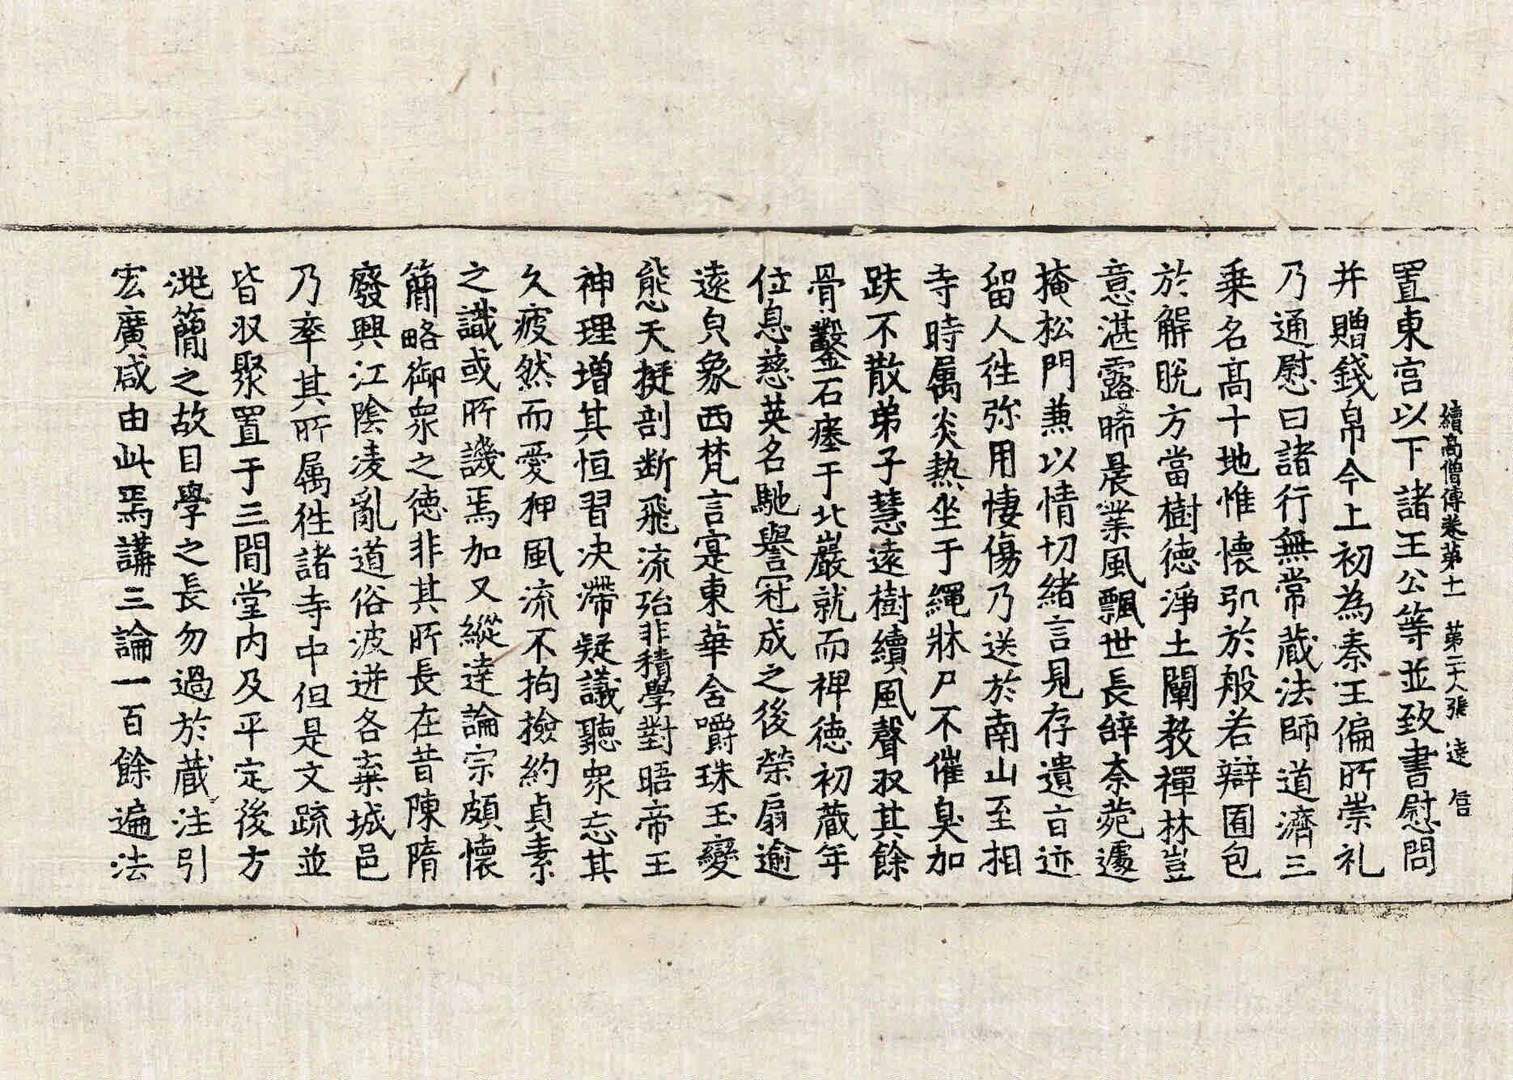 續高僧傳卷第十一 第二十八張 達 信
置東宮以下諸王公等並致書慰問
并贈錢帛今上初為秦王偏所崇礼
乃通慰曰諸行無常蔵法師道濟三
乗名髙十地惟懷弘於般若辯囿包
於解脱方當樹徳淨土闡教禪林豈
意湛露晞晨業風飄世長辞柰苑遽
掩松門兼以情切緒言見存遺旨迹
留人徃弥用悽傷乃送於南山至相
寺時属炎熱坐于繩牀尸不催臭加
趺不散弟子慧遠樹續風聲収其餘
骨鑿石瘞于北巖就而裨徳初蔵年
位息慈英名馳譽冠成之後榮扇逾
遠皃象西梵言寔東華含嚼珠玉變
態天挺剖断飛流殆非積學對晤帝王
神理増其恒習决滯疑議聽衆忘其
久疲然而愛狎風流不拘撿約貞素
之識或所譏焉加又縱達論宗頗懐
簡略御衆之徳非其所長在昔陳隋
廢興江陰凌亂道俗波迸各棄城邑
乃率其所属徃諸寺中但是文疏並
皆収聚置于三間堂内及平定後方
洮簡之故目學之長勿過於蔵注引
宏廣咸由此焉講三論一百餘遍法